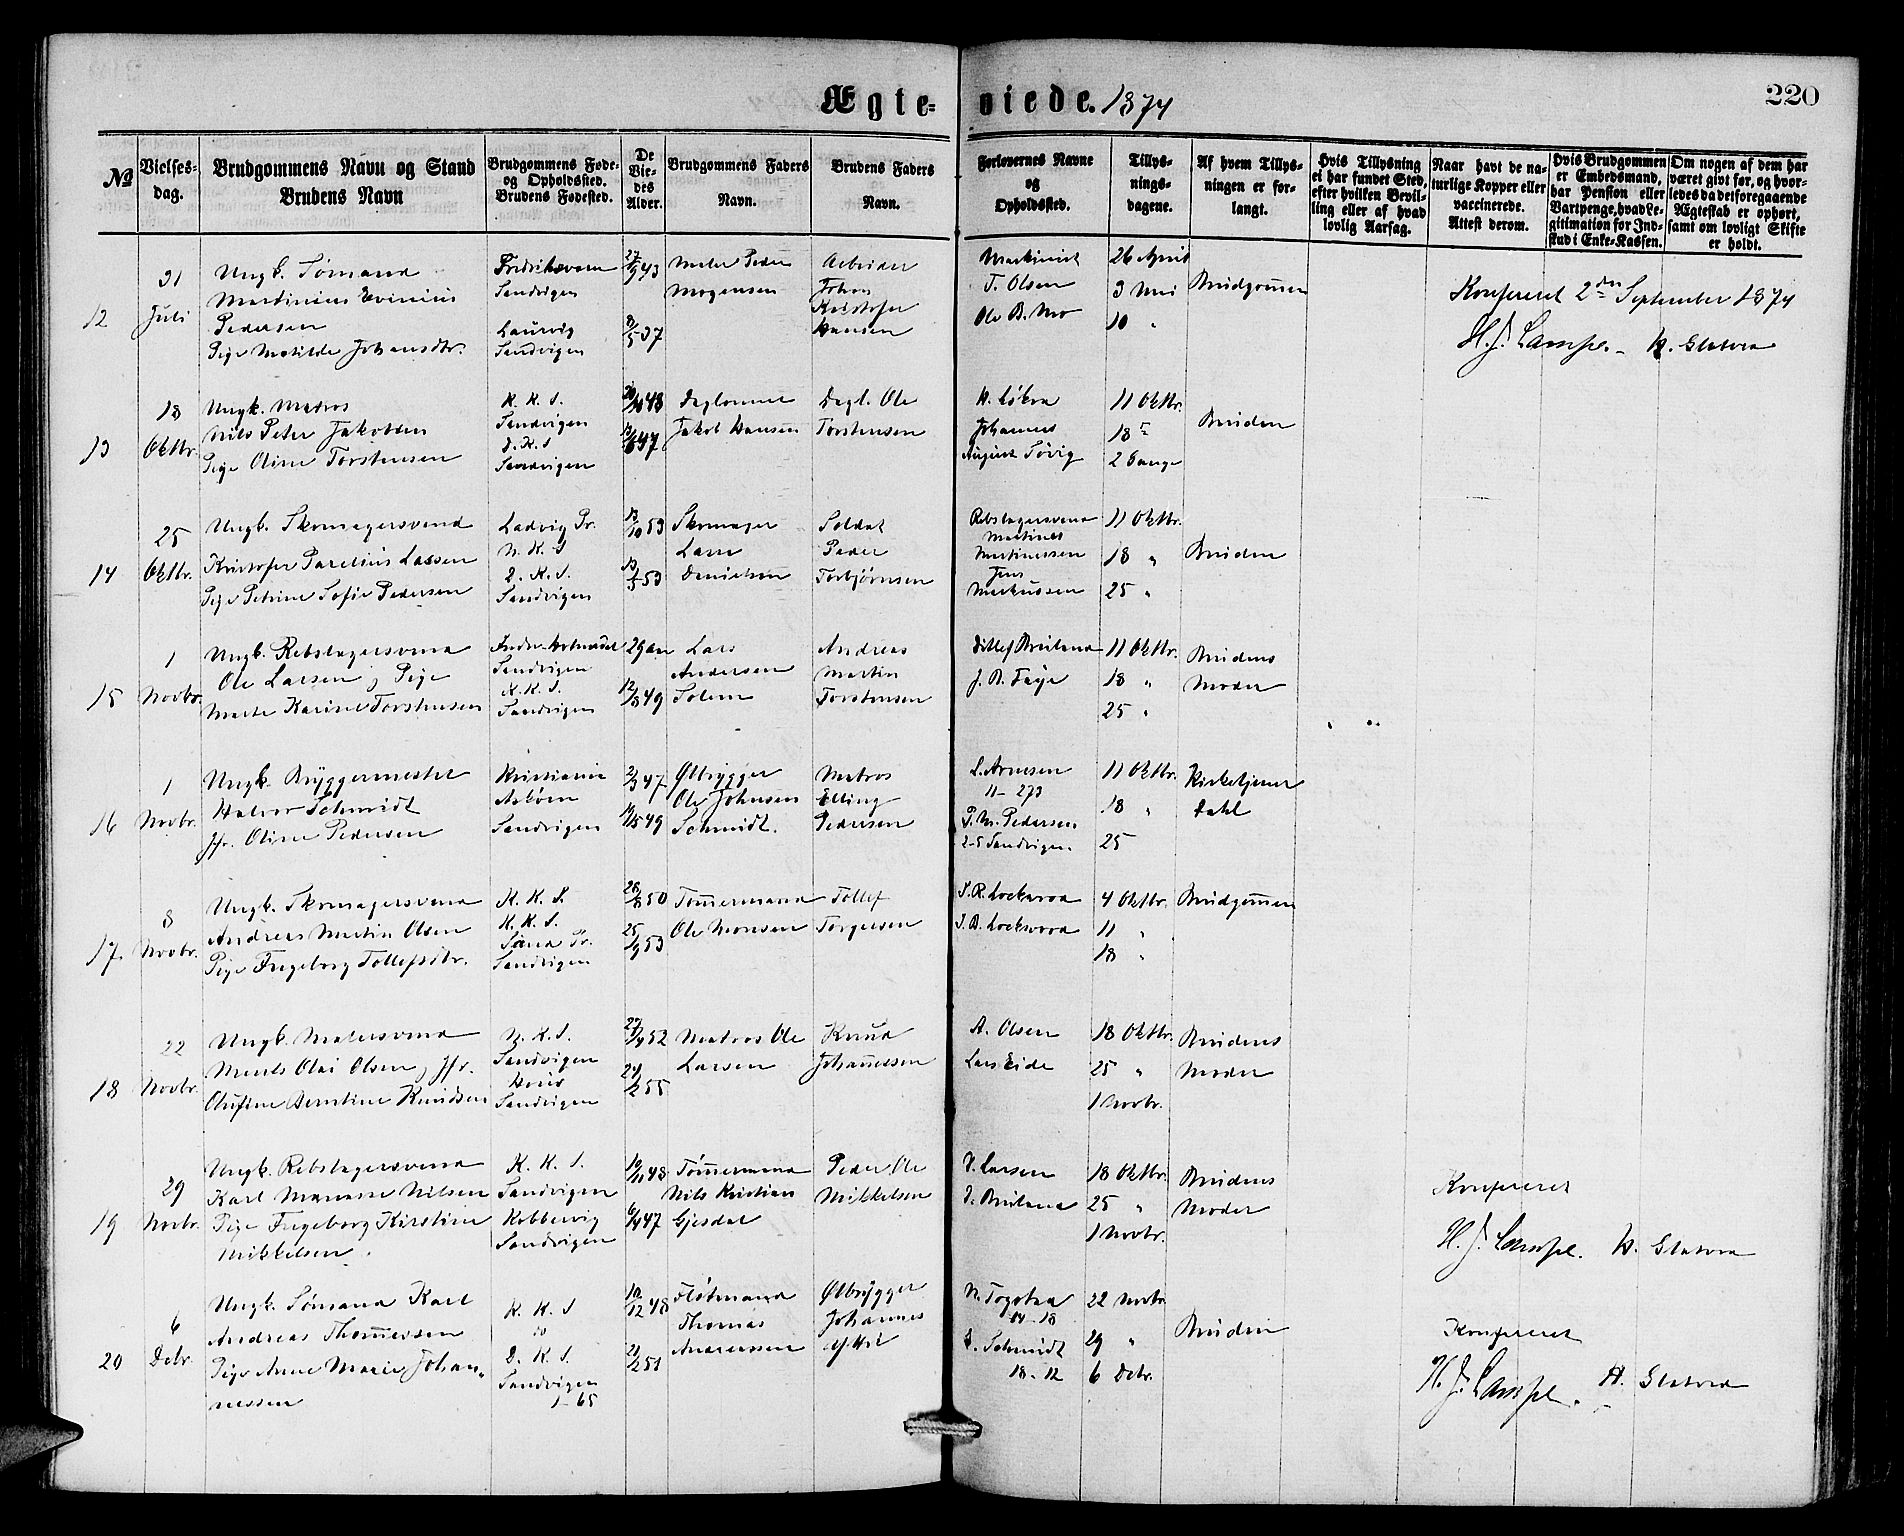 Ægte-viede. 1874
220
No
Vielses-dag.
Brudgommens Navn og Stand
Brudens Navn
Brudgommens Føde- og Opholdssted.
Brudens Fødested.
De Viedes Alder.
Brudgommens Faders Navn.
Brudens Faders Navn.
Forlovernes Navne og Opholdssted.
Tillysningsdagene.
Af hvem Tillysningen er forlangt.
Hvis Tillysning ei har fundet Sted, efter hvilken Bevilling eller af hvad lovlig Aarsag.
Naar havt de naturlige Kopper eller vaccinerede. Attest derom.
Hvis Brudgommen er Embedsmand, har Pension eller Vartpenge, hvad Legitimation for Indskud i Enke-Kassen.
Om nogen af dem har været givt før, og hvorledes da det foregaaende Ægteskab er ophørt, samt om lovligt Skifte er holdt.
12
31 Juli
Ungk. Sømand
Martinius Evinius
Pedersen
Pige Matilde Johansdtr.
Fredriksværn
Sandvigen
Laurvig
Sandvigen
27/9 43
8/5 37
Maler Peder
Mogensen
Arbeider
Johan
Kristofer
Hansen
Maskinist
T. Olsen
Ole B. Mo
26 April
3 Mai
10 "
Brudgommen
Konfereret 2den September 1874
H. J. Lampe. H. Slatvea
13
18 Oktbr.
Ungk. Matros
Nils Peter Jakobsen
Pige Oline Torstensen
K. K. S.
Sandvigen
D. K. S
Sandvigen
Daglønner
Jakob Hansen
Dagl. Ole
Torstensen
Johannes
August Søvig
11 Oktbr.
18
2 Gange
Bruden
14
25 Oktbr.
Ungk. Skomagersvend
Kristofer Parelius Lassen
Pige Petrine Sofie Pedersen
Ladvig Pr.
N. K. S
D. K. S.
Sandvigen
13/10 53
Skomager
Lasse
Danielsen
Soldat
Peder
Torbjørnsen
Rebslagersvend
Martines
Martinessen
Jens
Markussen
11 Oktbr.
18 "
25 "
Bruden
15
1 Novbr.
Ungk. Rebslagersvend
Ole Larsen, Pige
Marte Karine Torstensen
Sandvigen
K. K. S.
Sandvigen
29 Aar
12/8 49
Lars
Andersen
Solem
Andreas
Martin
Torstensen
J. B. Faye
11 Oktbr.
18 "
25 "
Brudens
Moder
16
1 Novbr.
Ungk. Bryggermester
Halvor Schmidt
Jfr. Oline Pedersen
Kristiania
Askøen
Sandvigen
2/3 47
Ølbrygger
Ole Johnsen
Schmidt.
Matros
Elling
Pedersen
L. Arnesen
11- 273
P. M. Pedersen
2-5 Sandvigen.
11 Oktbr.
18 "
25
Kirketjener
Dahl
17.
8 Novbr.
Ungk. Skomagersvend
Andreas Martin Olsen
Pige Ingeborg Tollefsdtr.
K. K. S.
K. K. S.
Sandvigen
26/8 50
25/9 53
Tømmermand
Ole Monsen
Tollef
Torgersen
S. R. Lockwood
J. B. Lockwood
4 Oktbr.
11 "
18 "
Brudgommen
18
22 Novbr.
Ungk. Malersvend
Ments Olai Olsen, Jfr.
Olufine Berntine Knudsen
N. K. S.
Sandvigen
Sandvigen
Matros Ole
Larsen
Knud
Johannessen
A. Olsen
Lars Eide
18 Oktbr.
25 "
1 Novbr.
Brudens
Moder
19
29 Novbr.
Ungk. Rebslagersvend
Karl Manasse Nilsen
Pige Ingeborg Kirstine
Mikkelsen.
K. K. S.
Sandvigen
Kobbervig
Sandvigen
Tømmermand
Nils Kristian
Gjesdal
Peder Ole
Mikkelsen
V. Larsen
18 Oktbr.
25 "
1 Novbr.
Brudens
Moder
Konfereret
H. J. Lampe. H. Slatvea
20
6 Debr.
Ungk. Sømand Karl
Andreas Thomessen
Pige Anne Marie Johan-
nessen
K. K. S
D. K. S.
Sandvigen
1- 65
10/12 48
21/2 51
Fløtmand
Thomas
Andreassen
Ølbrygger
Johannes
14-18
Schmidt
18-12
22 Novbr
29 "
6 Debr.
Bruden
Konfereret
H. J. Lampe. H. Slatvea